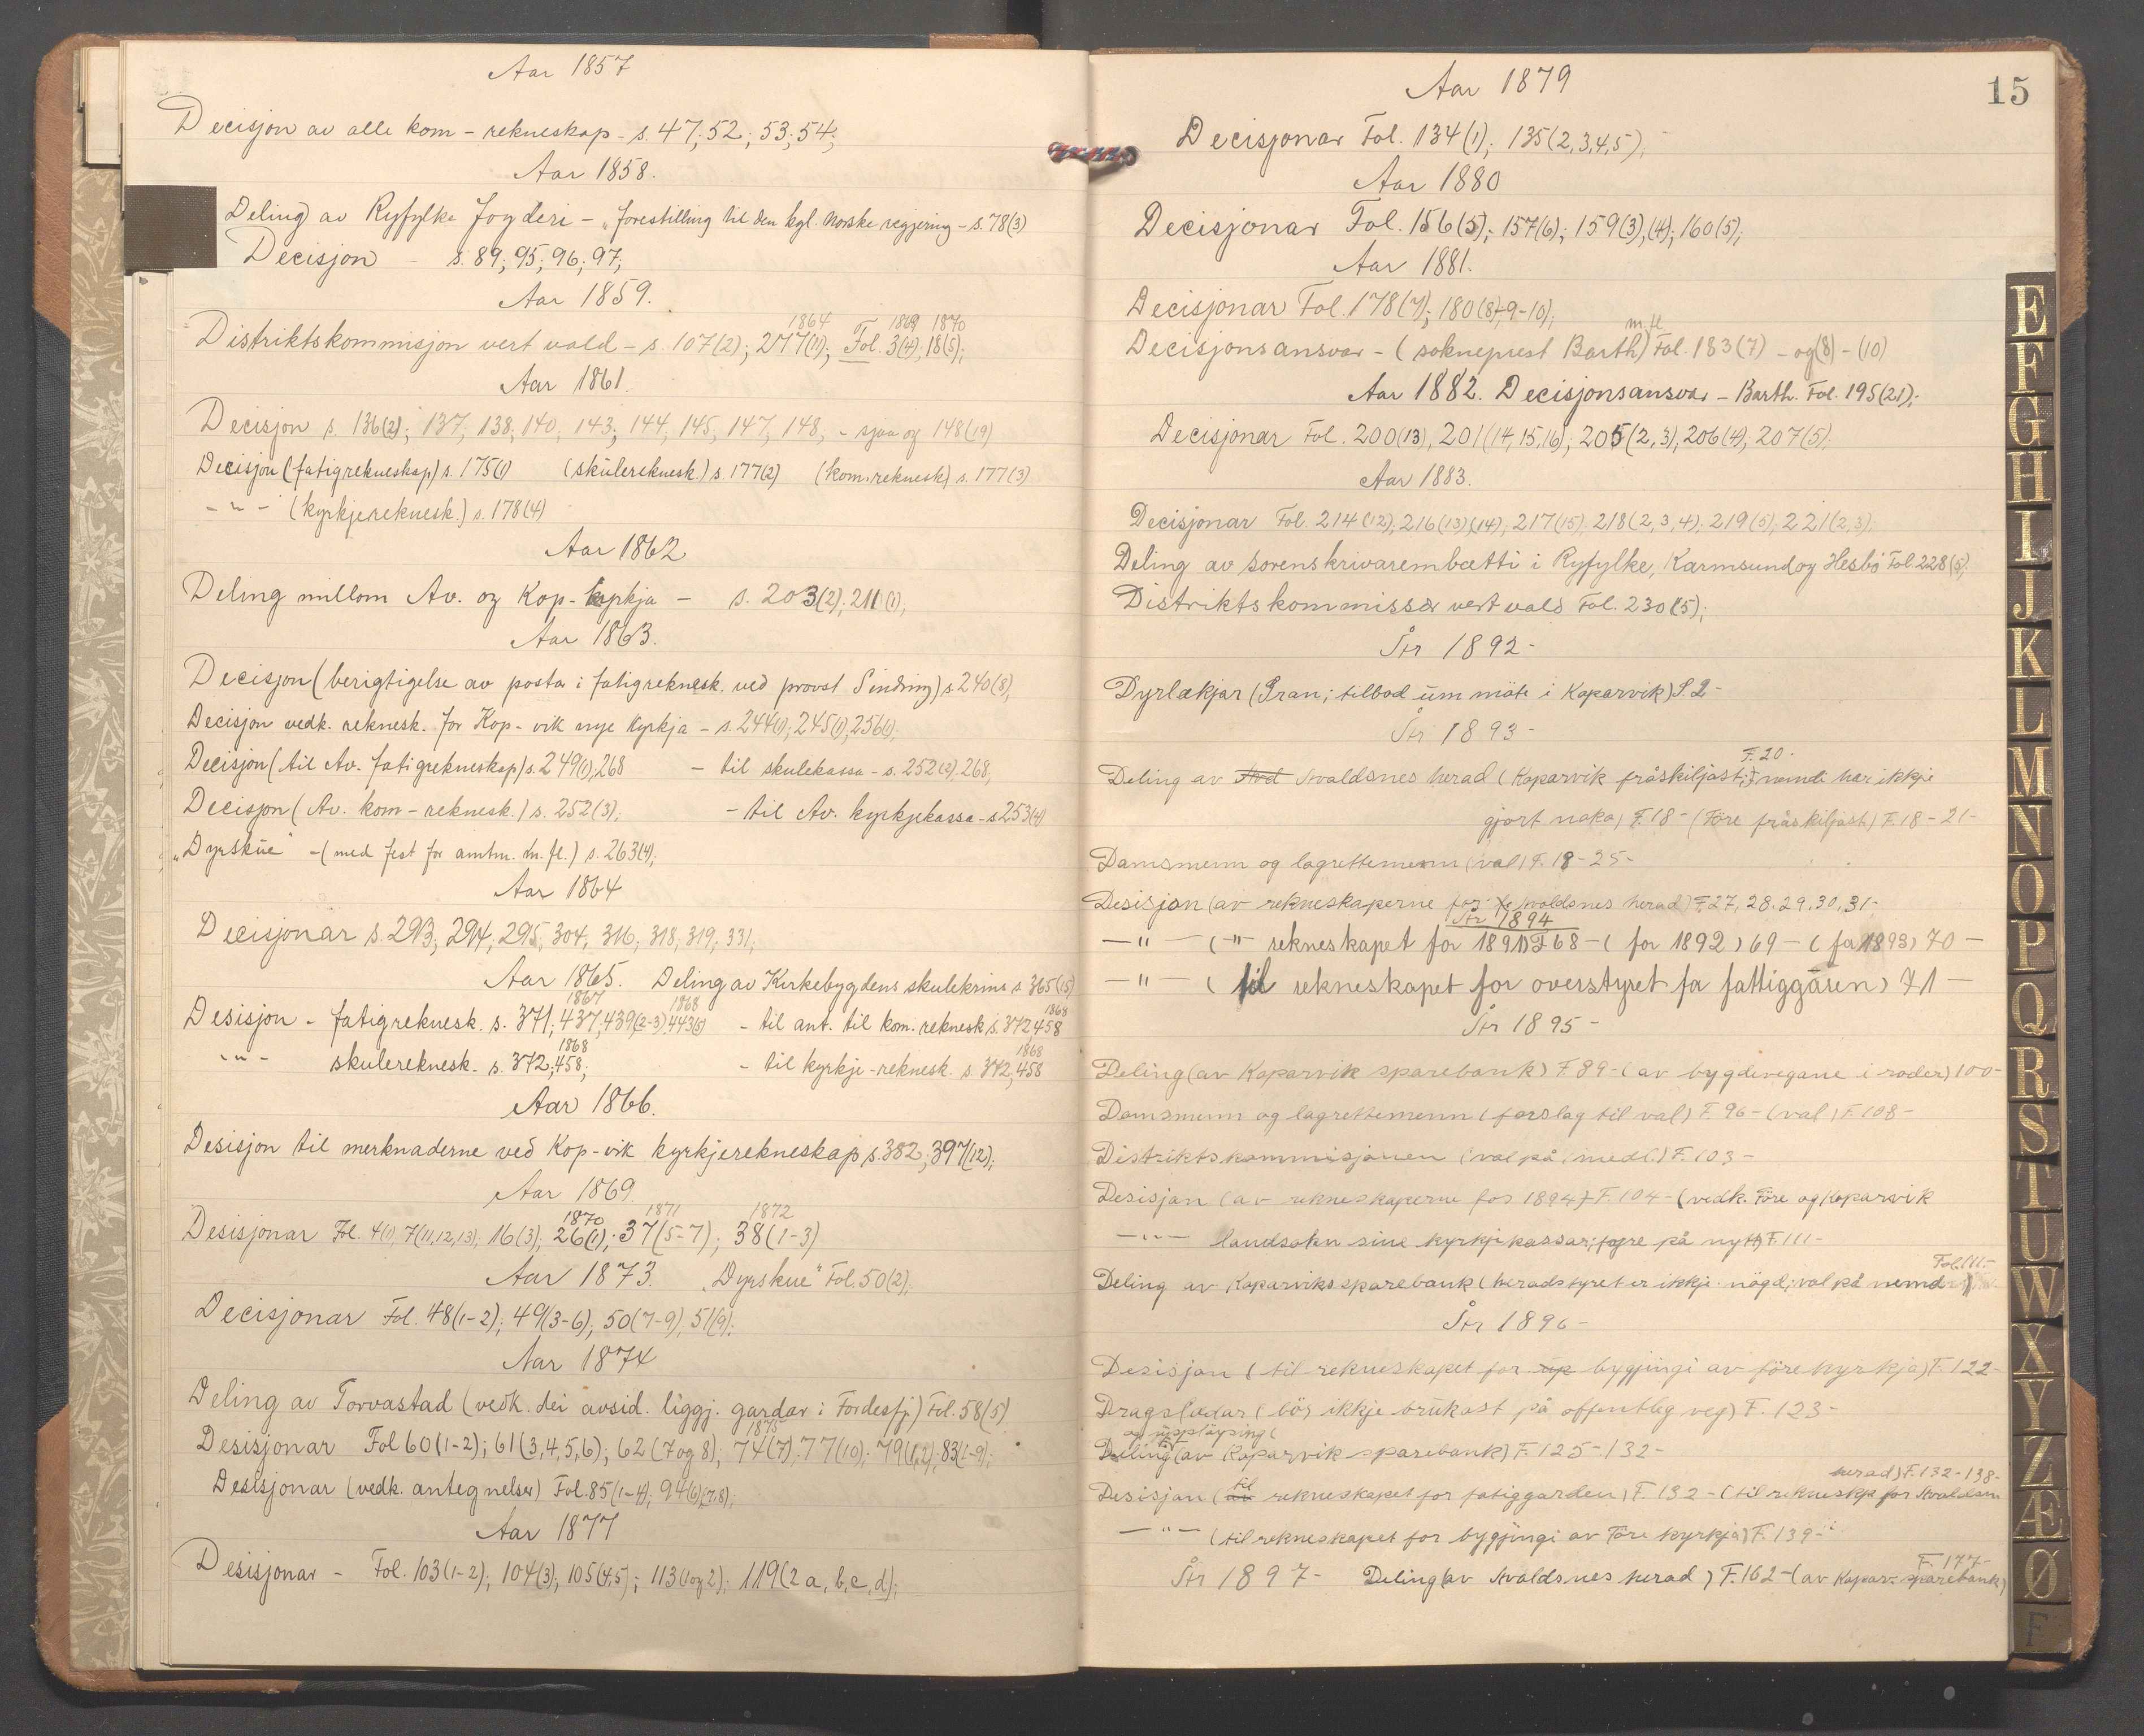 Aar 1857
Decisjon av alle kom - rekneskap - s. 47; 52; 53; 54;
Aar 1858.
Deling av Ryfylke Fogderi - „forestilling til den kgl. Norske regjering - s. 78(3)
Decisjon - s. 89; 95; 96; 97;
Aar 1859.
1864 1869 1870
Distriktskommisjon vert vald - s. 107(2); 277(11); Fol. 3(4), 18(5);
Aar 1861.
Decisjon s. 136(2); 137, 138, 140, 143; 144, 145, 147, 148, - sjaa og 148(19)
Decisjon (fatigrekneskap) s. 175(1) (skülereknesk.) s. 177(2) (kom.reknesk) s. 177(3)
- " - (kyrkjereknesk.) s. 178(4)
Aar 1862
Deling millom Av. og Kop-kyrkja - s. 203(2); 211(1),
Aar 1863.
Decisjon (berigtigelse av postar i fatigreknesk. ved provst Sinding) s. 240(8),
Decisjon vedk. reknesk. for Kop-vik nye kyrkja - s. 244(1); 245(1), 256(1),
Decisjon (til Av. fatigrekneskap) s. 249(1), 268 - til skulekassa - s. 252(2), 268,
Decisjon (Av. kom-reknesk.) s. 252(3); - til Av. kyrkjekassa - s 253(4)
„Dyrskue" - (med fest for amtm. m. fl.) s. 263(4);
Aar 1864
Decisjonar s. 293, 294, 295, 304, 316, 318, 319, 331,
Aar 1865. Deling av Kirkebygdens skulekrins s. 365(15)
1867 1868 1868
Desisjon - fatigreknesk. s. 371; 437; 439(2-3) 443(5) - til ant. til kom. reknesk s. 372, 458
1868 1868
- " - skulereknesk. s. 372; 458; - til kyrkje-reknesk. s. 372, 458
Aar 1866.
Desisjon til merknaderne ved Kop-vik kyrkjerekneskap s. 382, 397(12);
Aar 1869.
1870 1871 1872
Desisjonar Fol. 4(1), 7(11,12,13), 16(3); 26(1); 37(5-7); 38(1-3)
Aar 1873. „Dyrskue" Fol. 50(2);
Decisjonar Fol. 48(1-2); 49(3-6); 50(7-9), 51(9);
Aar 1874
Deling av Torvastad (vedk. dei avsid. liggj. gardar i Fördesfj.) Fol. 58(5)
1875
Desisjonar Fol 60(1-2); 61(3,4,5,6); 62(7 og 8); 74(7), 77(10); 79(1,2); 83(1-9);
Desisjonar (vedk. antegnelser) Fol. 85(1-4); 94(6)(7,8);
Aar 1877
Desisjonar - Fol. 103(1-2); 104(3); 105(4,5); 113(1 og 2); 119(2 a, b, c, d);
15
Aar 1879
Decisjonar Fol. 134(1); 135(2,3,4,5);
Aar 1880
Decisjonar Fol. 156(5); 157(6); 159(3), (4); 160(5);
Aar 1881.
Decisjonar Fol. 178(7); 180(8-9-10);
m. fl.
Decisjonsansvar - (sokneprest Barth) Fol. 183(7) - og (8) - (10)
Aar 1882. Decisjonsansvar - Barth. Fol. 195(21);
Decisjonar Fol. 200(13), 201(14,15,16); 205(2,3), 206(4), 207(5);
Aar 1883.
Decisjonar Fol. 214(12), 216(13)(14); 217(15), 218(2,3,4); 219(5), 221(2,3);
Deling av sorenskrivarembætti i Ryfylke, Karmsund og Hesbö Fol. 228(5),
Distriktskommissær vert vald Fol. 230(5);
År 1892-
Dyrlækjar (Gran; tilbod um möte i Koparvik) S. 2-
År 1893-
F. 20-
Deling av Avaldsnes herad (Koparvik fråskiljast; nemdi har ikkje
gjort noko) F. 18- (Före fråskiljast) F. 18-21-
Domsmenn og lagrettemenn (val) F. 18-25-
Desisjon (av rekneskaperne for Avaldsnes herad) F. 27, 28, 29, 30, 31-
År 1894
- " - (- " rekneskapet for 1891) F 68 - (for 1892) 69 - (for 1893) 70 -
- " - (til rekneskapet for overstyret for fattiggåren) 71 -
År 1895-
Deling (av Koparvik sparebank) F. 89 - (av bygdevegane i roder) 100-
Domsmenn og lagrettemenn (forslag til val) F. 96 - (val) F. 108-
Distriktskommisjonen (val på medl.) F. 103-
Desisjon (av rekneskaperne for 1894) F. 104 - (vedk. Före og Koparvik
- " - landsokn sine kyrkjekassar; före på nytt) F. 111-
Fol. 111-
Deling av Koparviks sparebank (heradstyret er ikkje nögd; val på nemd)
År 1896-
Desisjon (til rekneskapet for bygjingi av före kyrkja) F. 122-
Dragslædar (bör ikkje brükast på offentleg veg) F. 123-
og üpplöysing (
Deling (av Koparvik sparebank) F. 125-132-
herad) F. 132-138-
til
Desisjon (av rekneskapet for fatiggarden) F. 132 - (til rekneskp for Avaldsn.
- " - (til rekneskapet for bygjingi av Före kyrkja) F. 139-
F. 177-
År 1897- Deling (av Avaldsnes herad) F. 162 - (av Kopar. sparebank)
E
F
G
H
I
J
K
L
M
N
O
P
Q
R
S
T
U
W
X
Y
Z
Æ
Ø
F